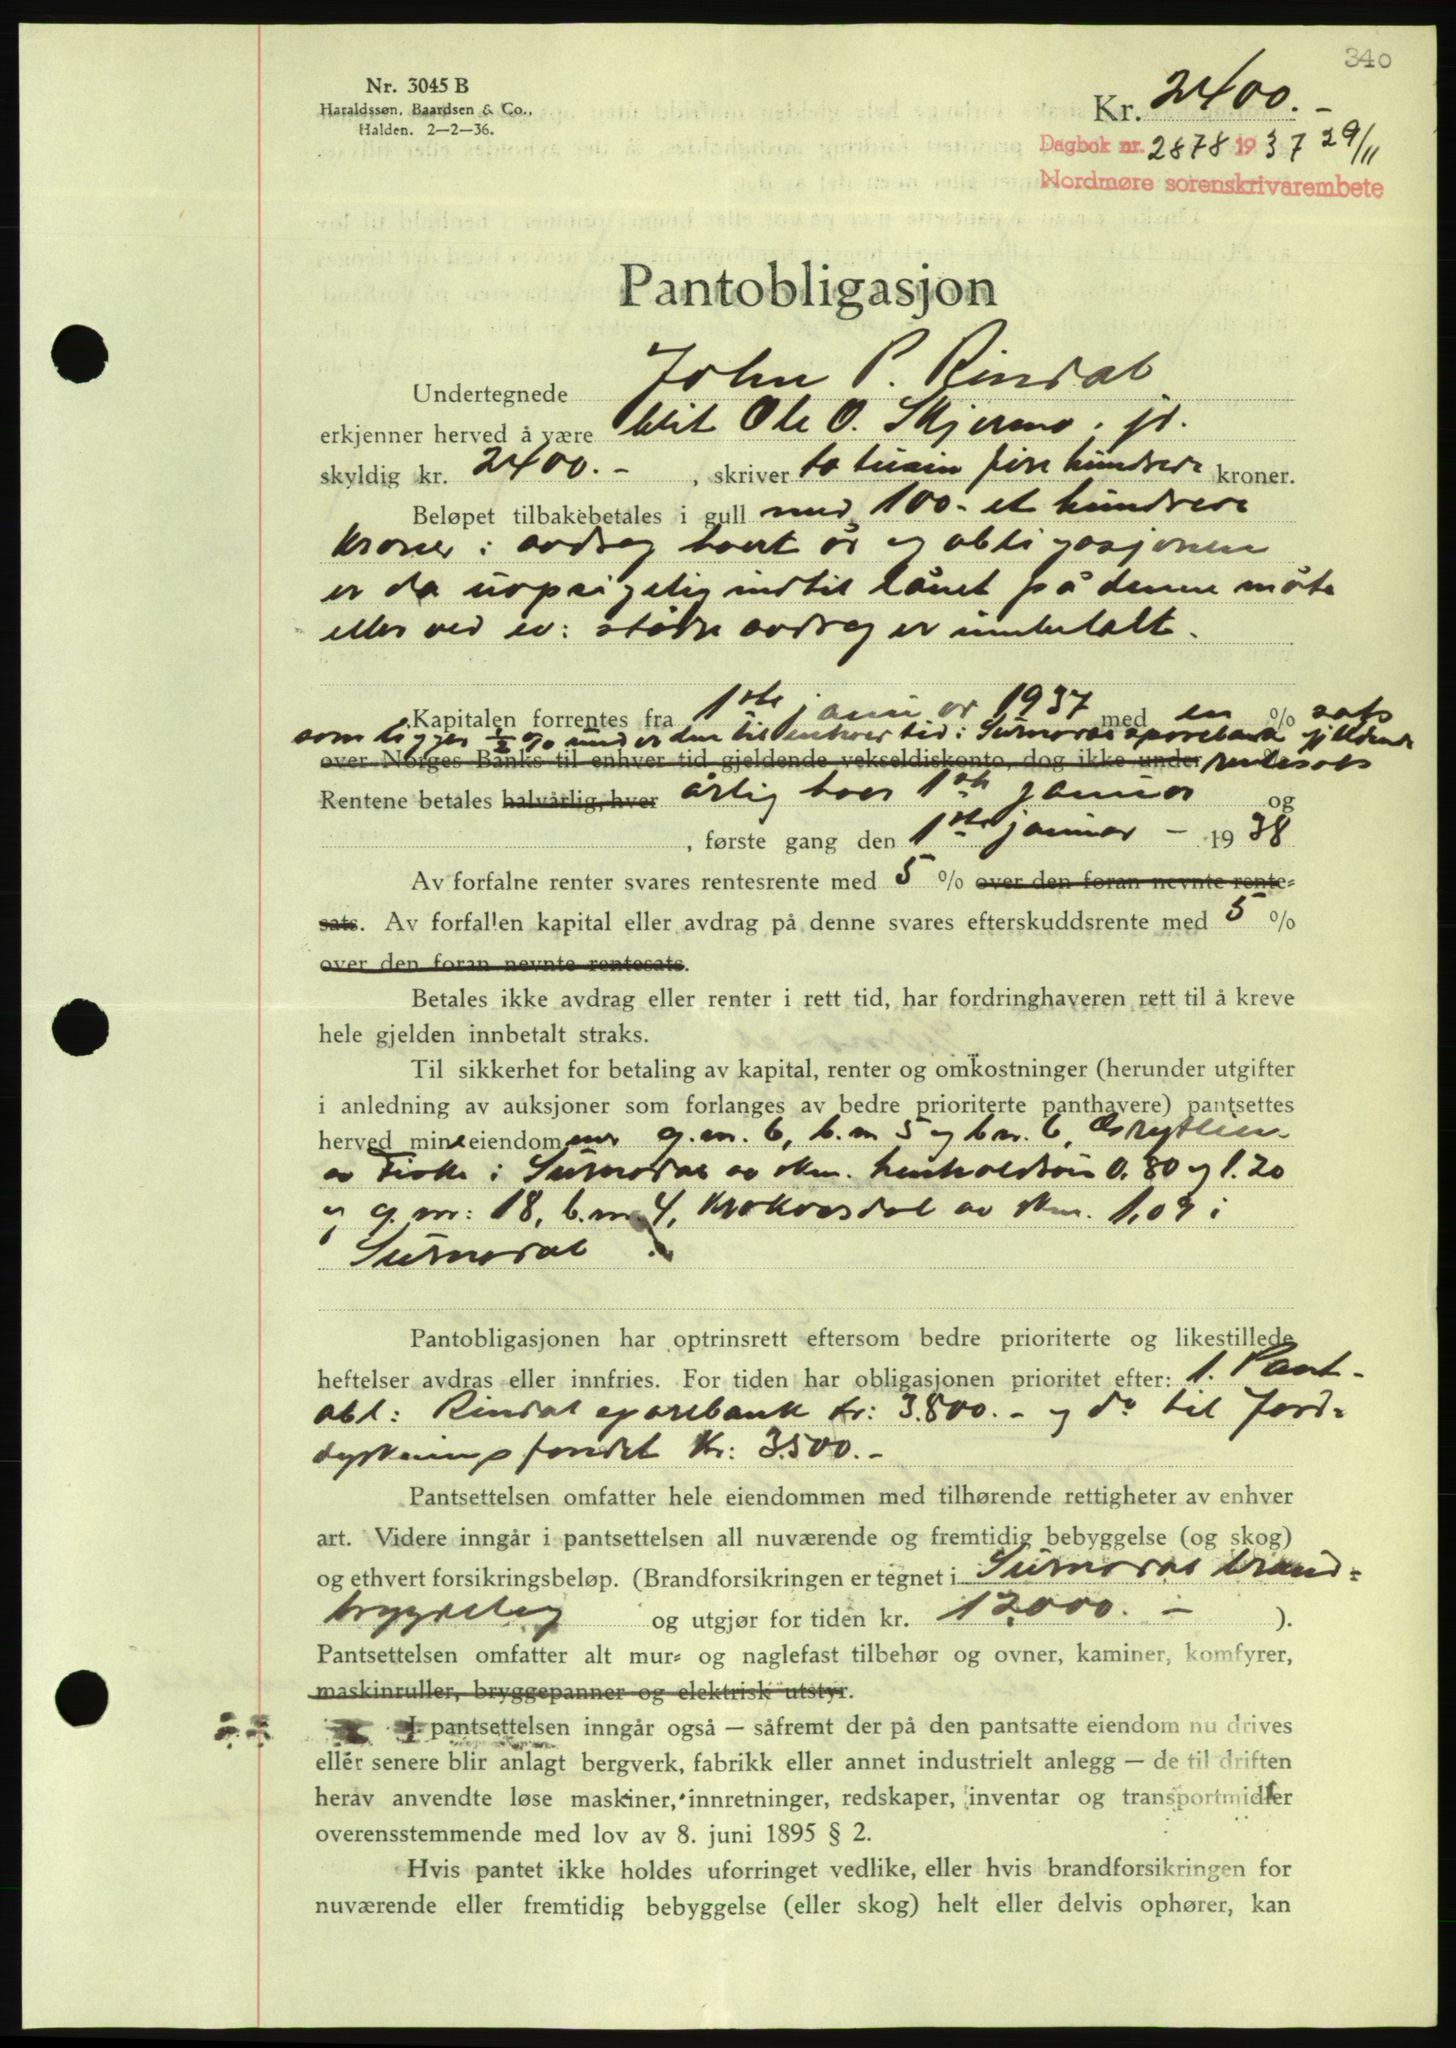 340
Nr. 3045 B
Haraldssøn, Baardsen & Co.,
Halden. 2—2—36.
Kr. 2400.-
Dagbok nr. 2878 1937 29/11
Nordmøre sorenskrivarembete
Pantobligasjon
Undertegnede John P. Rindal
erkjenner herved å være blit Ole O. Skjermo. jr.
skyldig kr. 2400.- , skriver to tusin fire hundrede kroner.
Beløpet tilbakebetales i gull med 100.- et hundrede
kroner i avdrag hvert år og obligasjonen
er da uopsigelig indtil lånet på denne måte
eller ved ev: større avdrag er innbetalt.
Kapitalen forrentes fra 1ste januar 1937 med en % sats
som ligger 1/2 % under den til enhver tid i Surnadal sparebank gjeldende
over Norges Banks til enhver tid gjeldende vekseldiskonto, dog ikke under rentesats
Rentene betales halvårlig, hver årlig hver 1ste januar og
, første gang den 1ste januar - 1938
Av forfalne renter svares rentesrente med 5 % over den foran nevnte rente-
sats. Av forfallen kapital eller avdrag på denne svares efterskuddsrente med 5 %
over den foran nevnte rentesats.
Betales ikke avdrag eller renter i rett tid, har fordringhaveren rett til å kreve
hele gjelden innbetalt straks.
Til sikkerhet for betaling av kapital, renter og omkostninger (herunder utgifter
i anledning av auksjoner som forlanges av bedre prioriterte panthavere) pantsettes
herved mine eiendommer g.nr. 6, b.nr 5 og bnr. 6,
av Fiske i Surnadal av skm. henholdsvis 0.80 og 1.20
og g.nr: 18, b.nr 4, Krokvasdal av skm. 1,09 i
Surnadal
Pantobligasjonen har optrinsrett eftersom bedre prioriterte og likestillede
heftelser avdras eller innfries. For tiden har obligasjonen prioritet efter: 1. Pant-
obl: Rindal sparebank kr: 3.800.- og do til Jord-
dyrkningsfondet Kr: 3500.-
Pantsettelsen omfatter hele eiendommen med tilhørende rettigheter av enhver
art. Videre inngår i pantsettelsen all nuværende og fremtidig bebyggelse (og skog)
og ethvert forsikringsbeløp. (Brandforsikringen er tegnet i Surnadal brand-
trygdelag og utgjør for tiden kr. 12.000.- ).
Pantsettelsen omfatter alt mur- og naglefast tilbehør og ovner, kaminer, komfyrer,
maskinruller, bryggepanner og elektrisk utstyr.
I pantsettelsen inngår også — såfremt der på den pantsatte eiendom nu drives
eller senere blir anlagt bergverk, fabrikk eller annet industrielt anlegg — de til driften
herav anvendte løse maskiner, innretninger, redskaper, inventar og transportmidler
overensstemmende med lov av 8. juni 1895 § 2.
Hvis pantet ikke holdes uforringet vedlike, eller hvis brandforsikringen for
nuværende eller fremtidig bebyggelse (eller skog) helt eller delvis ophører, kan